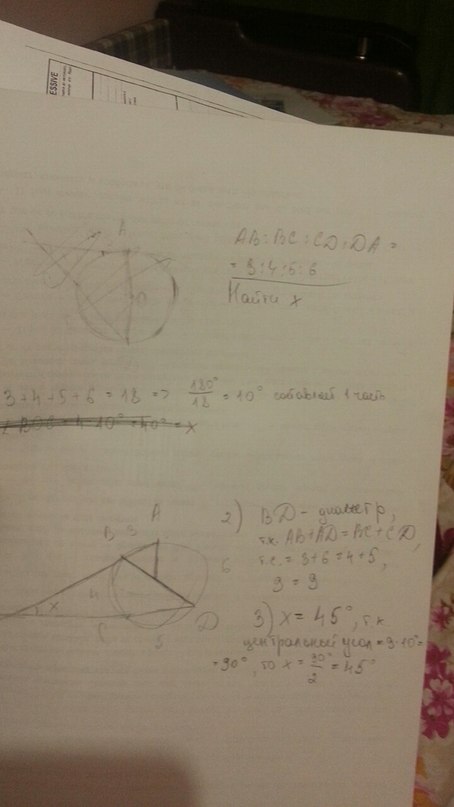 ESSIVE
A
AB : BC : CD : DA =
= 3 : 4 : 5 : 6
O
Найти x
3 + 4 + 5 + 6 = 18 => 180°/18 = 10° составляет 1 часть
= 4·10° = 40° = x
2) BD - диаметр,
т.к. AB + AD = BC + CD,
т.е. = 3 + 6 = 4 + 5,
9 = 9
A
B 3
6
4
x
D
5
3) x = 45°, т.к.
центральный угол = 9·10° =
= 90°, то x = 90°/2 = 45°